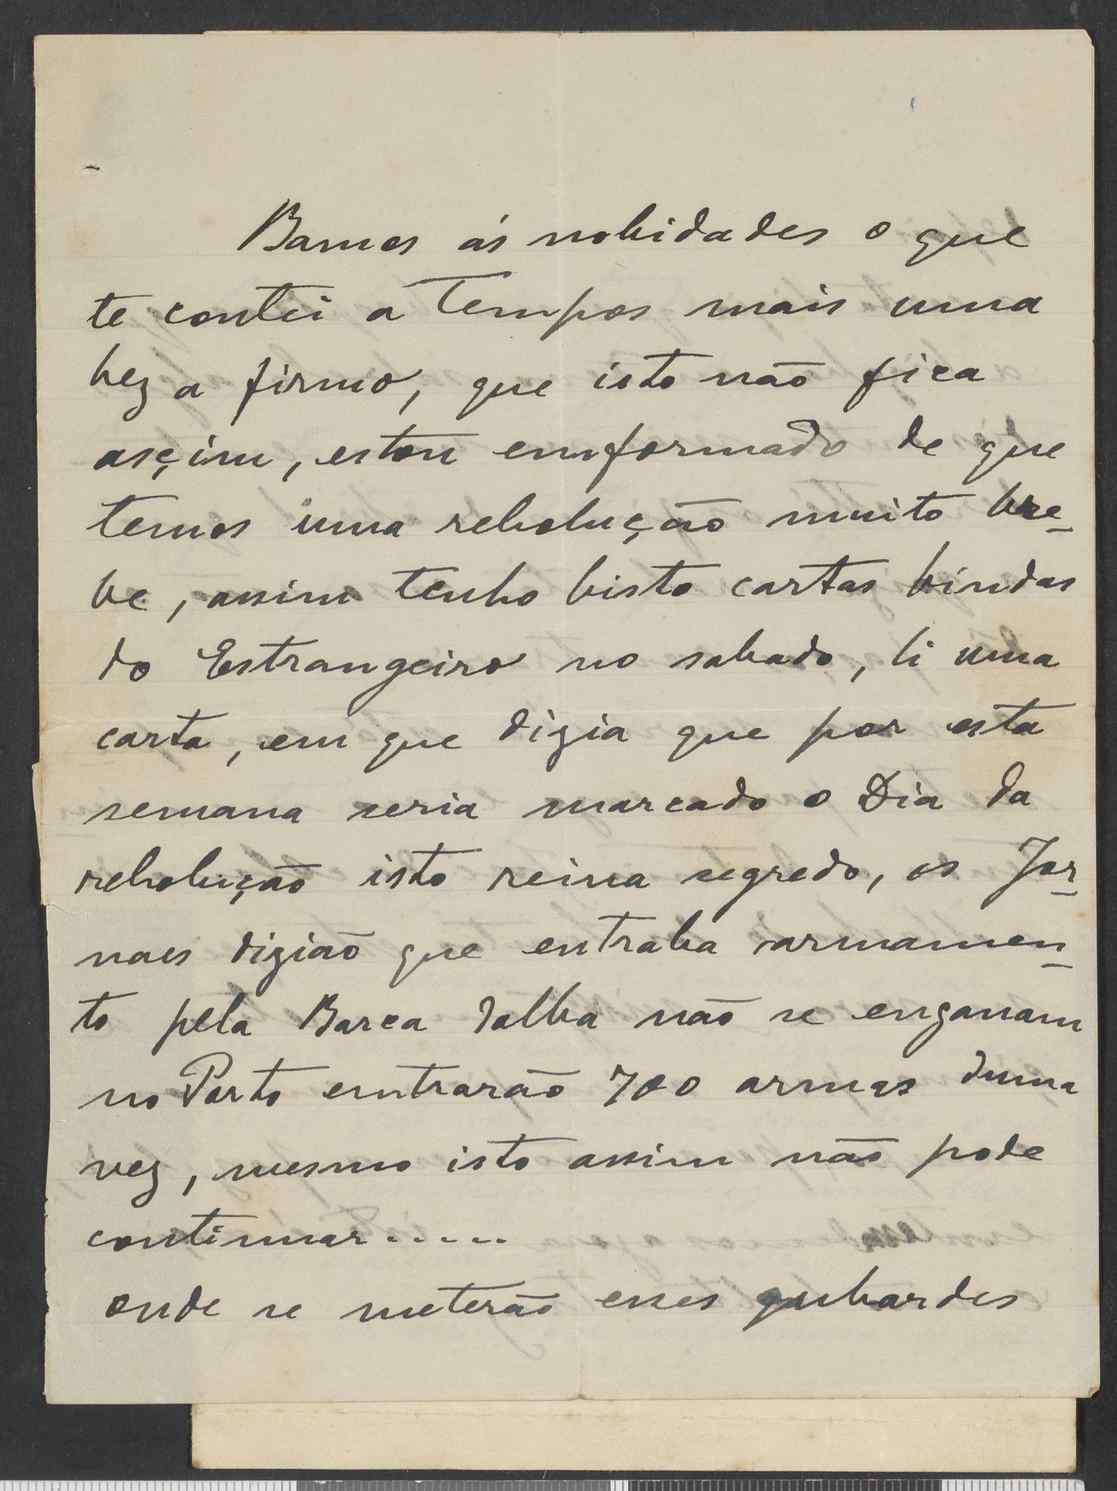 Bamos ás nobidades o que
te contei a Tempos mais uma
bez a firmo, que isto não fica
asçim, estou emformado de que
temos uma rebolução muito bre-
be, assim tenho bisto cartas bindas
do Estrangeiro no sabado, li uma
carta, em que dizia que por esta
semana seria marcado o Dia da
rebolução isto reina segredo, os Jor-
naes dizião que entraba armamen-
to pela Barca dalba não se enganam
no Porto emtrarão 700 armas duma
vez, mesmo isto assim não pode
continuar.....
onde se meterão esses qubardes